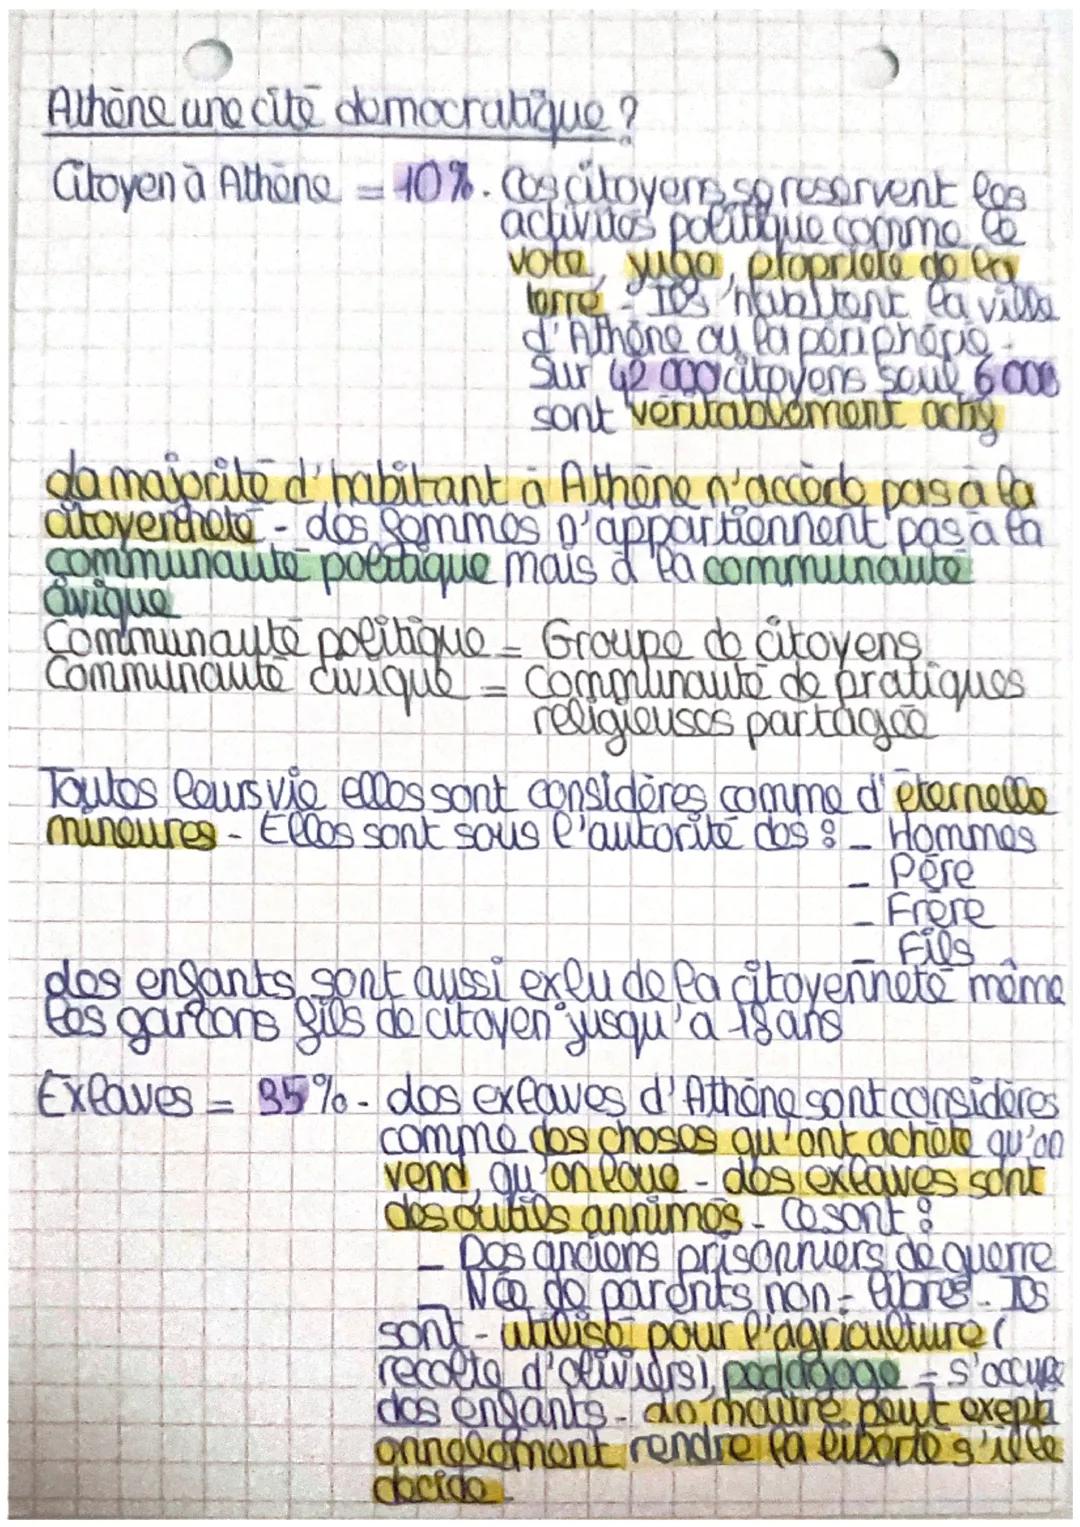 Athène une cité democratique ?
Citoyen à Athène = 10%. Ces citoyens se reservent les
activités politique comme le
vote, juge, propriété de la
terre - Ils habitent la ville
d'Athène ou la périphérie.
Sur 42 000 citoyens seul 6 000
sont véritablement actif
La majorité d'habitant à Athène n'accède pas à la
citoyenneté - des femmes n'appartiennent pas à la
communauté politique mais à la communauté
civique
Communauté politique = Groupe de citoyens
Communauté civique = Communauté de pratiques
religieuses partagée
Toutes leurs vie elles sont considères comme d'éternelle
mineures - Elles sont sous l'autorité des : - Hommes
- Père
- Frère
- Fils
Les enfants sont aussi exlu de la citoyenneté même
les garcons fils de citoyen jusqu'a 18 ans
Exlaves = 35% - des exlaves d'Athène sont considères
comme des choses qu'ont achète qu'on
vend, qu'on loue - des exlaves sont
des outils annimés - Ce sont :
- Des anciens prisonniers de guerre
- Née de parents non-libres. Ils
sont - utilisé pour l'agriculture (
recolte d'oliviers), pedagogue = s'occupe
des enfants - Le maitre peut exepti
onnelement rendre la liberté s'il le
decide.